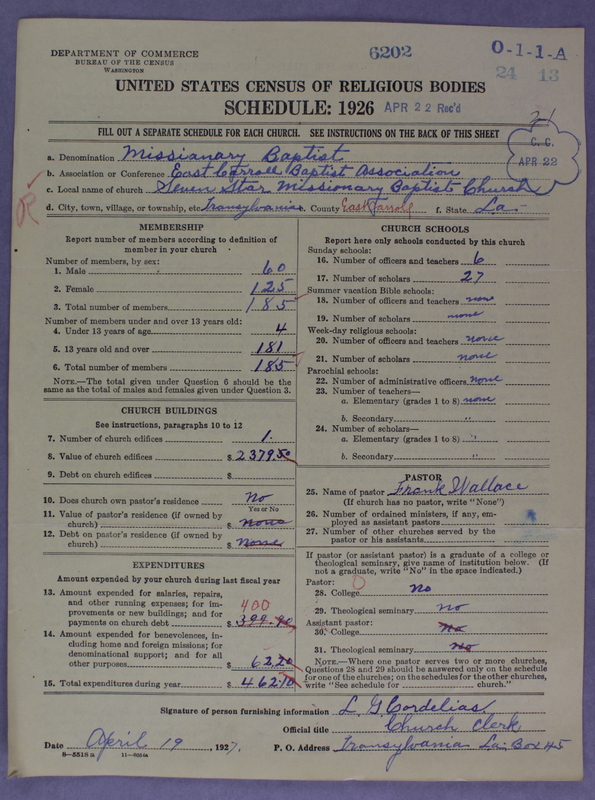 DEPARTMENT OF COMMERCE
BUREAU OF THE CENSUS
WASHINGTON
6202
O-1-1-A
24 13
UNITED STATES CENSUS OF RELIGIOUS BODIES
SCHEDULE: 1926 APR 22 Rec'd
FILL OUT A SEPARATE SCHEDULE FOR EACH CHURCH. SEE INSTRUCTIONS ON THE BACK OF THIS SHEET
C. C.
APR 22
a. Denomination Missianary Baptist
b. Association or Conference East Carroll Baptist Association
c. Local name of church Seven Star Missionary Baptist Church
d. City, town, village, or township, etc. Transylvania e. County East Carroll f. State La.
MEMBERSHIP
Report number of members according to definition of
member in your church
Number of members, by sex:
1. Male 60
2. Female 125
3. Total number of members 185
Number of members under and over 13 years old:
4. Under 13 years of age 4
5. 13 years old and over 181
6. Total number of members 185
NOTE.—The total given under Question 6 should be the
same as the total of males and females given under Question 3.
CHURCH BUILDINGS
See instructions, paragraphs 10 to 12
7. Number of church edifices 1.
8. Value of church edifices $ 237950
9. Debt on church edifices $
10. Does church own pastor's residence No
Yes or No
11. Value of pastor's residence (if owned by
church) $ none
12. Debt on pastor's residence (if owned by
church) $ none
EXPENDITURES
Amount expended by your church during last fiscal year
13. Amount expended for salaries, repairs,
and other running expenses; for im-
provements or new buildings; and for
payments on church debt $ 399.90
400
14. Amount expended for benevolences, in-
cluding home and foreign missions; for
denominational support; and for all
other purposes $ 62.20
15. Total expenditures during year $ 46210
CHURCH SCHOOLS
Report here only schools conducted by this church
Sunday schools:
16. Number of officers and teachers 6
17. Number of scholars 27
Summer vacation Bible schools:
18. Number of officers and teachers none
19. Number of scholars none
Week-day religious schools:
20. Number of officers and teachers none
21. Number of scholars none
Parochial schools:
22. Number of administrative officers none
23. Number of teachers—
a. Elementary (grades 1 to 8) none
b. Secondary "
24. Number of scholars—
a. Elementary (grades 1 to 8) "
b. Secondary "
PASTOR
25. Name of pastor Frank Wallace
(If church has no pastor, write "None")
26. Number of ordained ministers, if any, em-
ployed as assistant pastors
27. Number of other churches served by the
pastor or his assistants
If pastor (or assistant pastor) is a graduate of a college or
theological seminary, give name of institution below. (If
not a graduate, write "No" in the space indicated.)
Pastor:
28. College No
29. Theological seminary No
Assistant pastor:
30. College No
31. Theological seminary No
NOTE.—Where one pastor serves two or more churches,
Questions 28 and 29 should be answered only on the schedule
for one of the churches; on the schedules for the other churches,
write "See schedule for church."
Signature of person furnishing information L. G. Cordelias.
Official title Church Clerk
Date April 19, 1927. P. O. Address Transylvania La. Box 45
8-5518 a